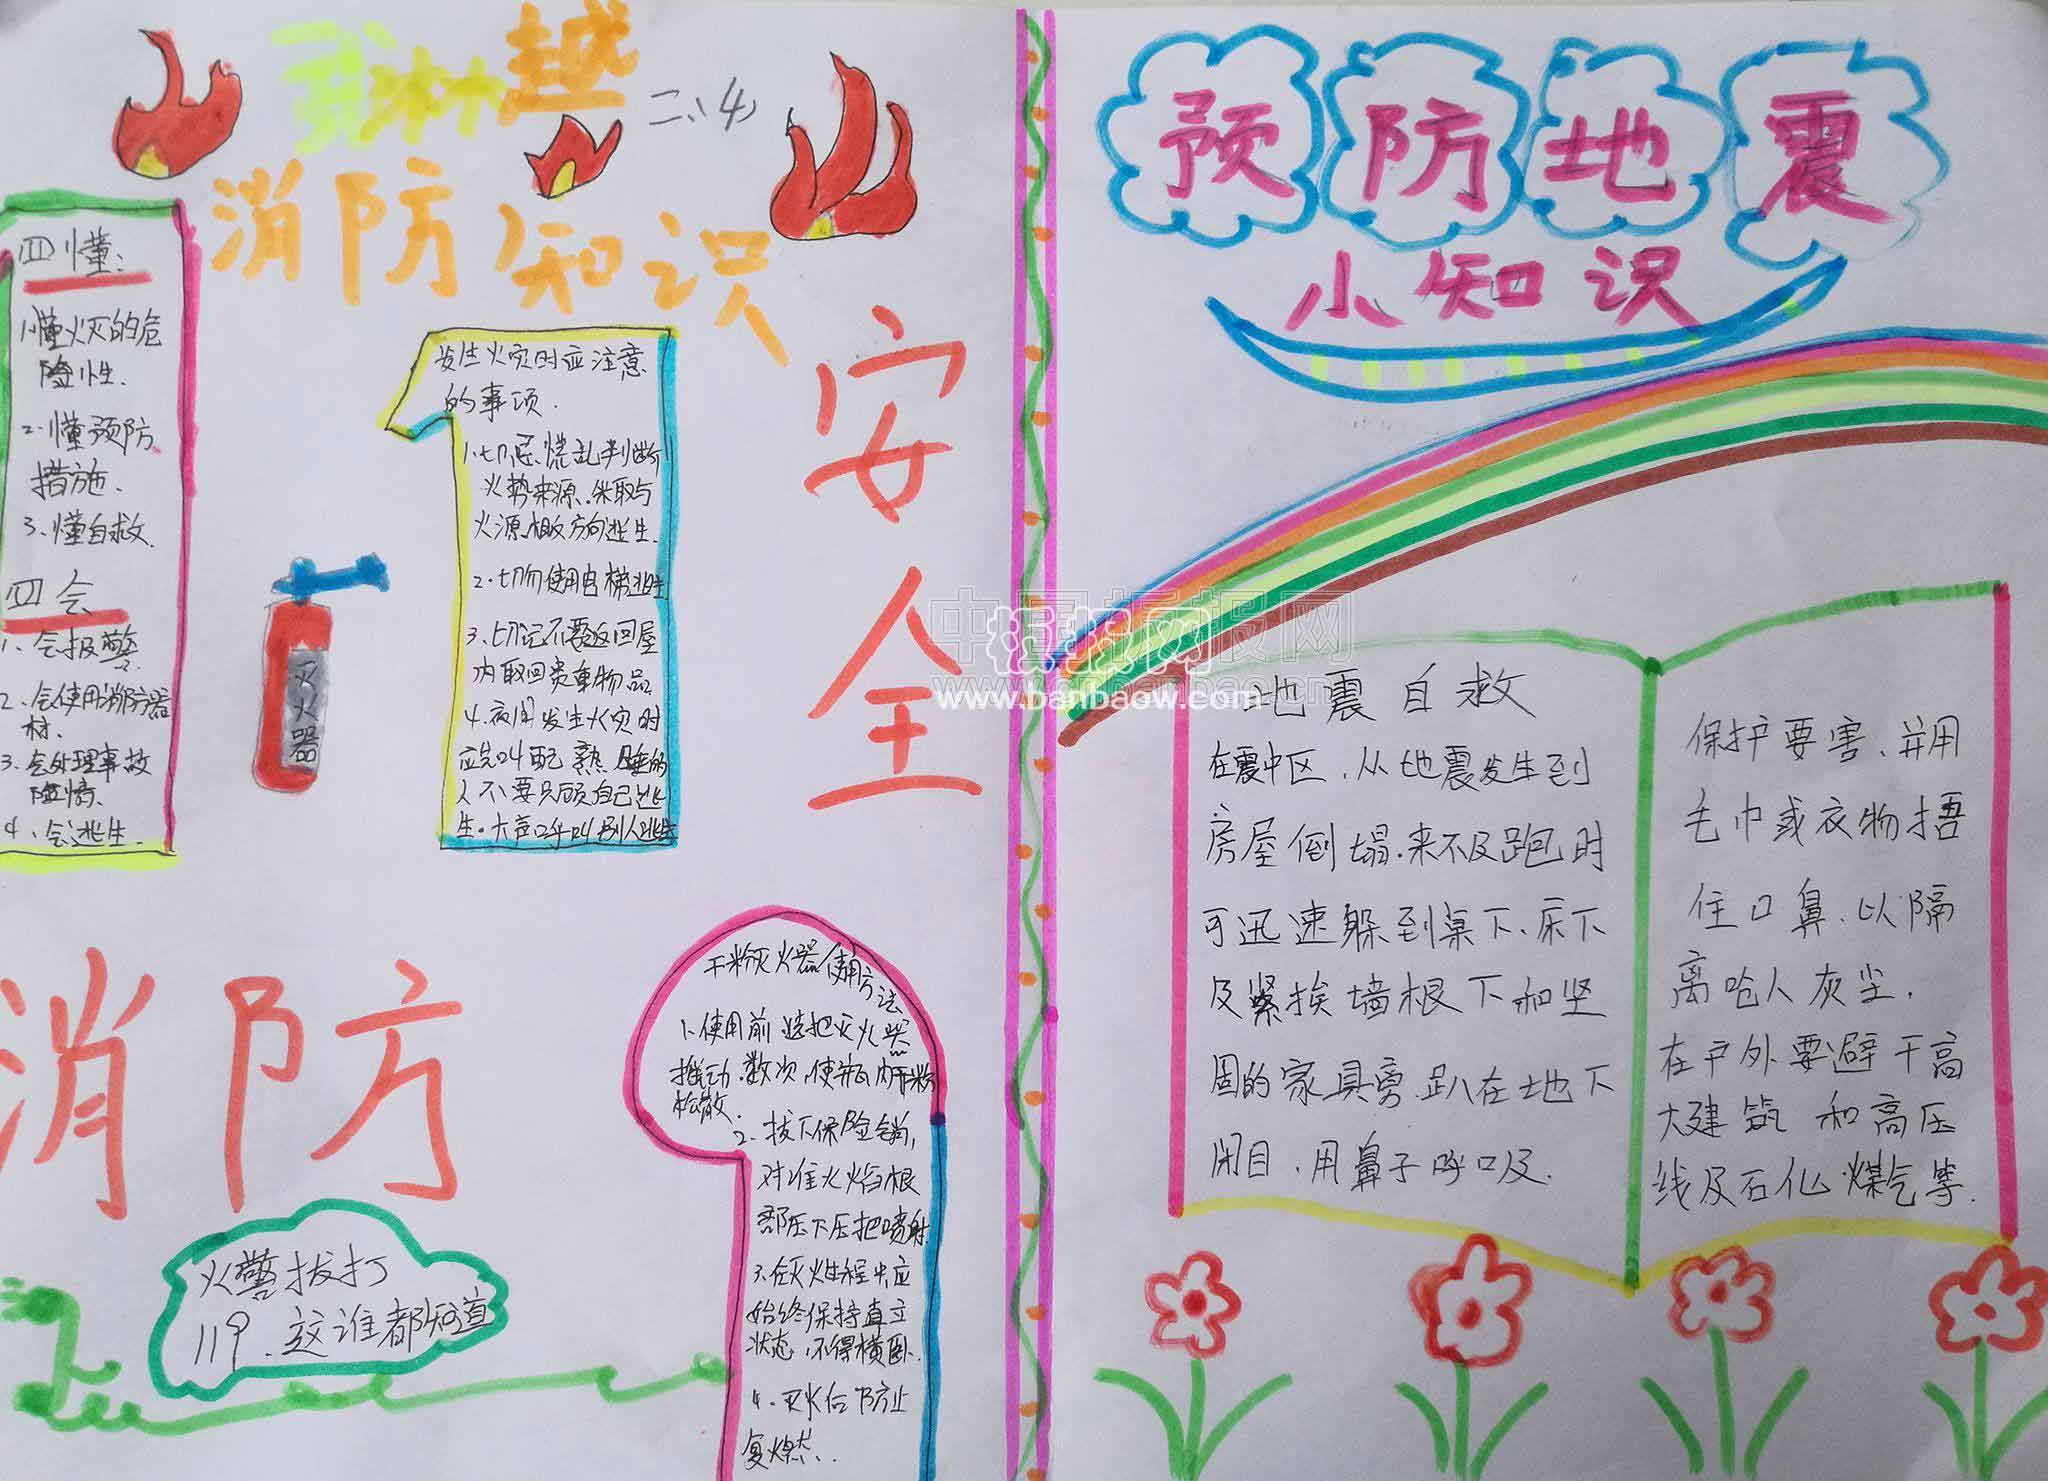 越
二、4
消防知识
四懂:
1.懂火灭的危
险性.
2.懂预防
措施.
3、懂自救.
四会
1、会报警
2、会使用消防器
材.
3、会处理事故
险情.
4、会逃生.
灭火器
发生火灾时应注意
的事项.
1.切忌慌乱判断
火势来源.采取与
火源相反方向逃生.
2.切勿使用电梯逃生
3.切记不要返回屋
内取回贵重物品
4.夜间发生火灾时
应先叫醒熟睡的
人不要只顾自己逃
生。大声呼叫别人逃生
安全
消防
火警拨打
119.这谁都知道
干粉灭火器使用方法
1.使用前 把灭火器
推动.数次,使瓶内干粉
松散.
2.拔下保险销,
对准火焰根
部压下压把喷射
3.在灭火过程中,应
始终保持直立
状态,不得横卧.
4.灭火后防止
复燃.
预防地震
小知识
中国板报网
板报网
www.banbaow.com
地震自救
在震中区.从地震发生到
房屋倒塌.来不及跑时
可迅速躲到桌下、床下
及紧挨墙根下和坚
固的家具旁.趴在地下
闭目.用鼻子呼吸.
保护要害、并用
毛巾或衣物捂
住口鼻.以隔
离呛人灰尘.
在户外要避干高
大建筑 和高压
线及石化、煤气等.